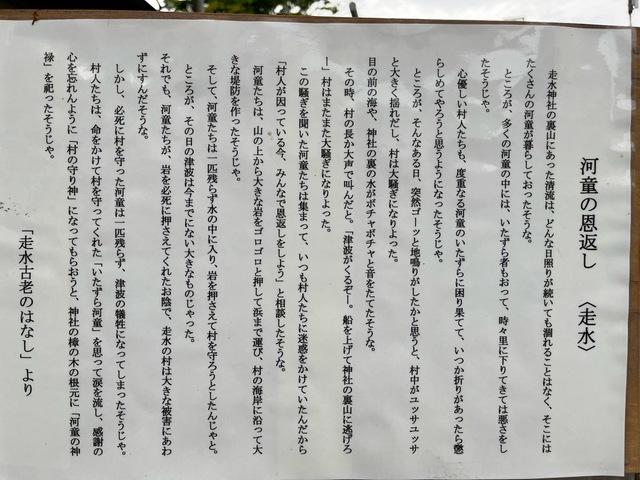 河童の恩返し 〈走水〉
走水神社の裏山にあった清流は、どんな日照りが続いても涸れることはなく、そこには
たくさんの河童が暮らしておったそうな。
ところが、多くの河童の中には、いたずら者もおって、時々里に下りてきては悪さをし
たそうじゃ。
心優しい村人たちも、度重なる河童のいたずらに困り果てて、いつか折りがあったら懲
らしめてやろうと思うようになったそうじゃ。
ところが、そんなある日、突然ゴーッと地鳴りがしたかと思うと、村中がユッサユッサ
と大きく揺れだし、村は大騒ぎになりよった。
目の前の海や、神社の裏の水がボチャボチャと音をたてたそうな。
その時、村の長が大声で叫んだと。「津波がくるぞー。船を上げて神社の裏山に逃げろ
ー」村はまたまた大騒ぎになりよった。
この騒ぎを聞いた河童たちは集まって、いつも村人たちに迷惑をかけていたんだから
「村人が困っている今、みんなで恩返しをしよう」と相談したそうな。
河童たちは、山の上から大きな岩をゴロゴロと押して浜まで運び、村の海岸に沿って大
きな堤防を作ったそうじゃ。
そして、河童たちは一匹残らず水の中に入り、岩を押さえて村を守ろうとしたんじゃと。
ところが、その日の津波は今までにない大きなものじゃった。
それでも、河童たちが、岩を必死に押さえてくれたお陰で、走水の村は大きな被害にあわ
ずにすんだそうな。
しかし、必死に村を守った河童は一匹残らず、津波の犠牲になってしまったそうじゃ。
村人たちは、命をかけて村を守ってくれた「いたずら河童」を思って涙を流し、感謝の
心を忘れんように「村の守り神」になってもらおうと、神社の樟の木の根元に「河童の神
祿」を祀ったそうじゃ。
「走水古老のはなし」より